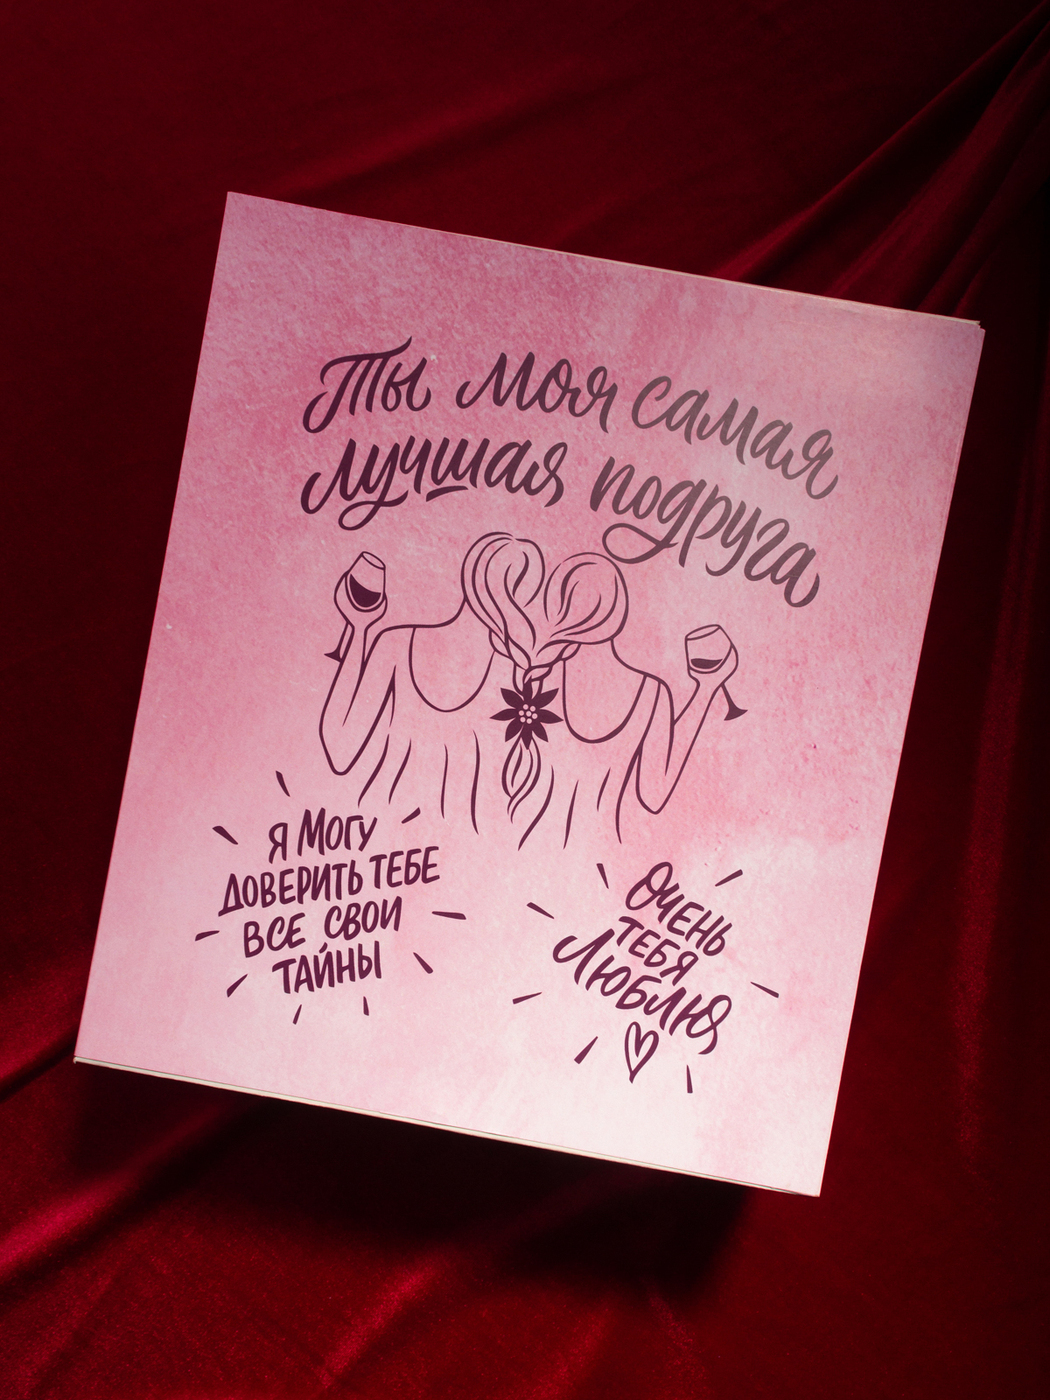 Ты моя самая
лучшая подруга
Я МОГУ
ДОВЕРИТЬ ТЕБЕ
ВСЕ СВОИ
ТАЙНЫ
ОЧЕНЬ
ТЕБЯ
ЛЮБЛЮ